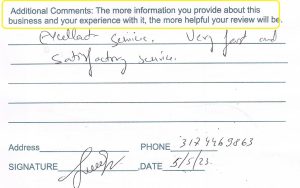 Additional Comments: The more information you provide about this
business and your experience with it, the more helpful your review will be.
Excellent Service. Very fast and
Satisfactory service.
Address PHONE 317 446 9863
SIGNATURE DATE 5/5/23